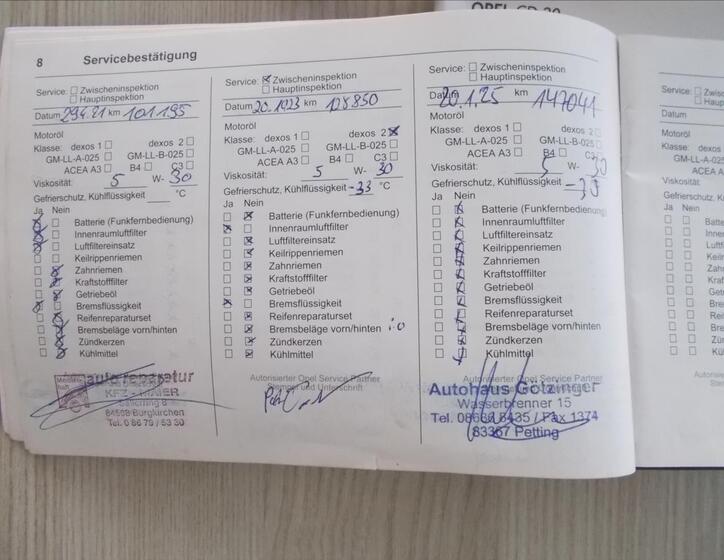 OPEL CD 30
8 Servicebestätigung
Service: Zwischeninspektion
Hauptinspektion
Datum 29.4.21 km 101.195
Motoröl
Klasse: dexos 1 dexos 2
GM-LL-A-025 GM-LL-B-025
ACEA A3 B4 C3
Viskosität: 5 W- 30
Gefrierschutz, Kühlflüssigkeit °C
Ja Nein
Batterie (Funkfernbedienung)
Innenraumluftfilter
Luftfiltereinsatz
Keilrippenriemen
Zahnriemen
Kraftstofffilter
Getriebeöl
Bremsflüssigkeit
Reifenreparaturset
Bremsbeläge vorn/hinten
Zündkerzen
Kühlmittel
autoreparatur
KFZ - MAIER
84508 Burgkirchen
Tel. 0 86 79 / 53 30
Service: Zwischeninspektion
Hauptinspektion
Datum 20.1023 km 128850
Motoröl
Klasse: dexos 1 dexos 2
GM-LL-A-025 GM-LL-B-025
ACEA A3 B4 C3
Viskosität: 5 W- 30
Gefrierschutz, Kühlflüssigkeit -33 °C
Ja Nein
Batterie (Funkfernbedienung)
Innenraumluftfilter
Luftfiltereinsatz
Keilrippenriemen
Zahnriemen
Kraftstofffilter
Getriebeöl
Bremsflüssigkeit
Reifenreparaturset
Bremsbeläge vorn/hinten i.o
Zündkerzen
Kühlmittel
Autorisierter Opel Service Partner
Stempel und Unterschrift
Service: Zwischeninspektion
Hauptinspektion
Datum 20.1.25 km 147041
Motoröl
Klasse: dexos 1 dexos 2
GM-LL-A-025 GM-LL-B-025
ACEA A3 B4 C3
Viskosität: 5 W- 30
Gefrierschutz, Kühlflüssigkeit
Ja Nein
Batterie (Funkfernbedienung)
Innenraumluftfilter
Luftfiltereinsatz
Keilrippenriemen
Zahnriemen
Kraftstofffilter
Getriebeöl
Bremsflüssigkeit
Reifenreparaturset
Bremsbeläge vorn/hinten
Zündkerzen
Kühlmittel
Autorisierter Opel Service Partner
Autohaus Götzinger
Wasserbrenner 15
Tel. 08686 8435 / Fax 1374
83367 Petting
Service:
Datum
Motoröl
Klasse: dex
GM-LL-A-02
ACEA
Viskosität:
Gefrierschutz,
Ja Nein
Batte
Inner
Luftfi
Keilr
Zahn
Kraft
Getr
Bre
Reif
Bre
Zür
Küh